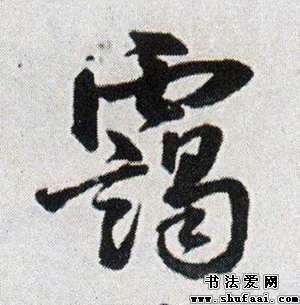 靄
书法爱网
www.shufaai.com